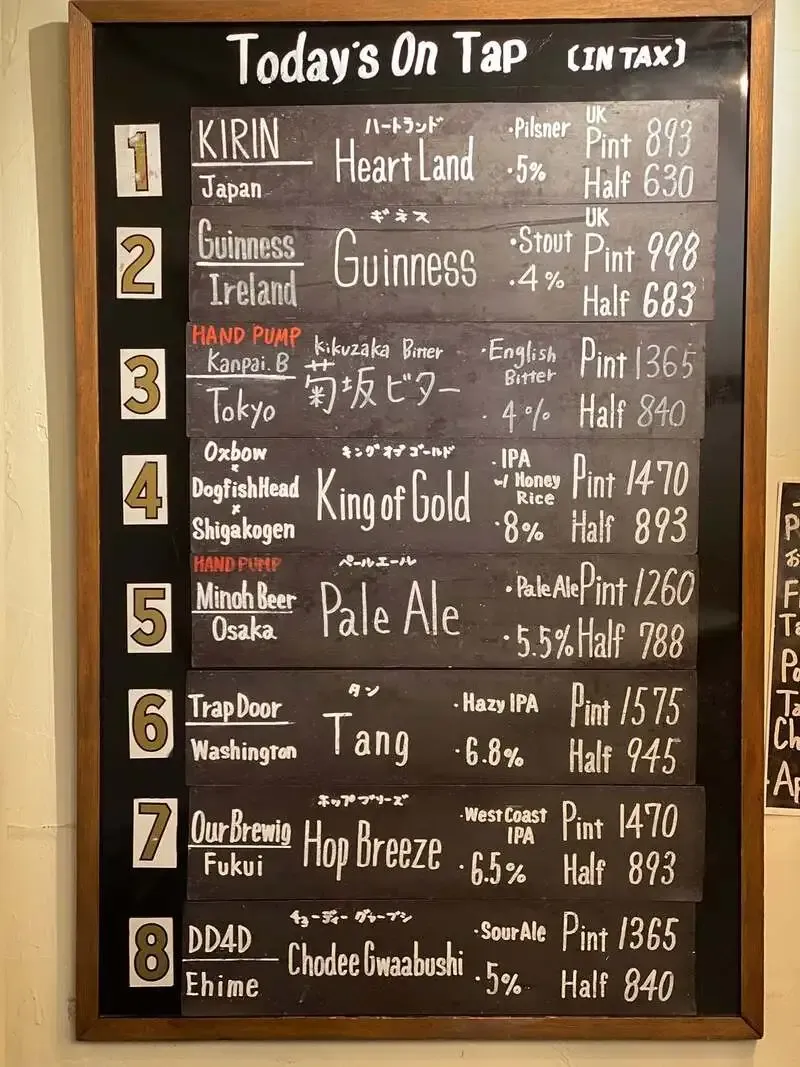 Today's On Tap (IN TAX)
1
KIRIN
Japan
ハートランド
Heart Land
・Pilsner
・5%
UK
Pint 893
Half 630
2
Guinness
Ireland
ギネス
Guinness
・Stout
・4%
UK
Pint 998
Half 683
3
HAND PUMP
Kanpai. B
Tokyo
kikuzaka Bitter
菊坂ビター
・English
Bitter
・4%
Pint 1365
Half 840
4
Oxbow
×
DogfishHead
×
Shigakogen
キングオブゴールド
King of Gold
・IPA
w/ Honey
Rice
・8%
Pint 1470
Half 893
5
HAND PUMP
Minoh Beer
Osaka
ペールエール
Pale Ale
・Pale Ale
・5.5%
Pint 1260
Half 788
6
Trap Door
Washington
タン
Tang
・Hazy IPA
・6.8%
Pint 1575
Half 945
7
OurBrewig
Fukui
ホップブリーズ
Hop Breeze
・West Coast
IPA
・6.5%
Pint 1470
Half 893
8
DD4D
Ehime
チョーディーグゥーブシ
Chodee Gwaabushi
・Sour Ale
・5%
Pint 1365
Half 840